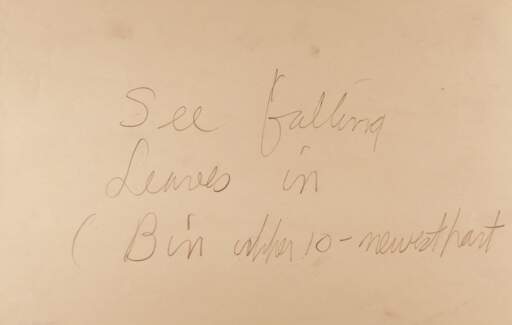 See falling
Leaves in
( Bin upper 10 - newest part